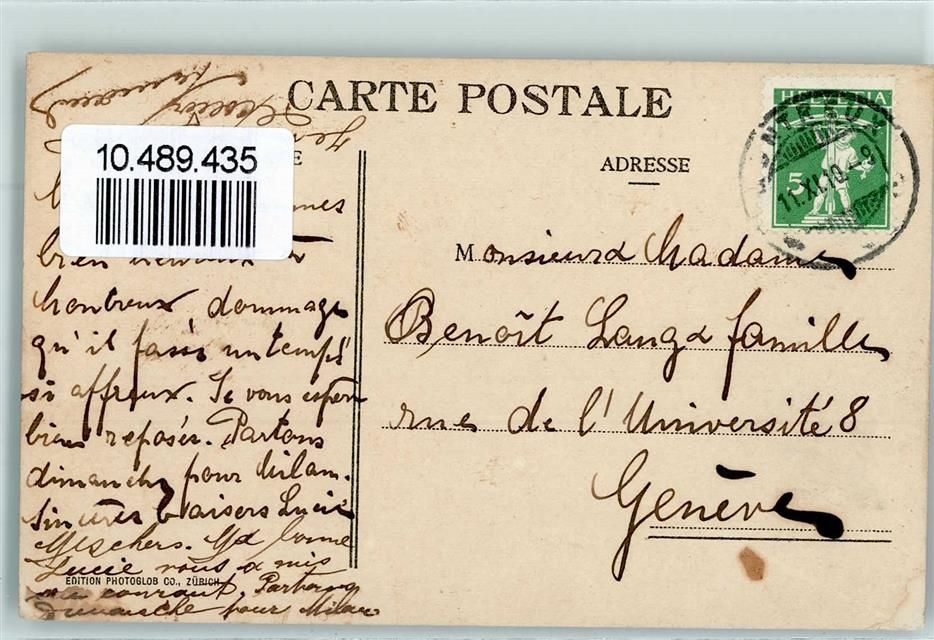 CARTE POSTALE
HELVETIA
5
11.XI.10.-9
10.489.435
ADRESSE
Monsieur & Madame
Benoît Lang & famille
rue de l'Université 8
Genève
bien
Montreux dommage
qu'il fasse un temps
si affreux. Je vous espère
bien reposés. Partons
dimanche pour Milan.
Sincères baisers Lucie
Meschers. bonne
Lucie vous a mis
au courant. Partons
Dimanche pour Milan
EDITION PHOTOGLOB CO., ZÜRICH